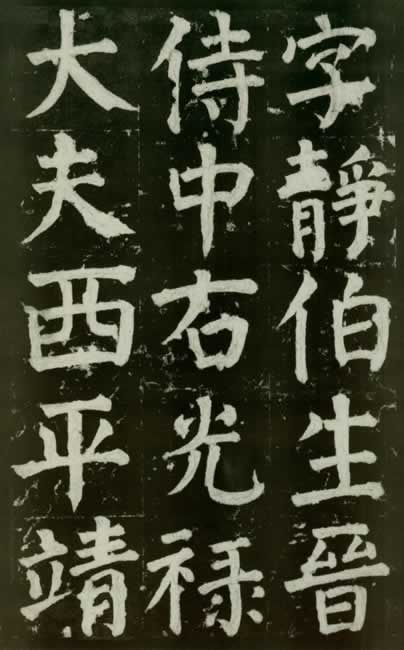 字靜伯生晉
侍中右光禄
大夫西平靖